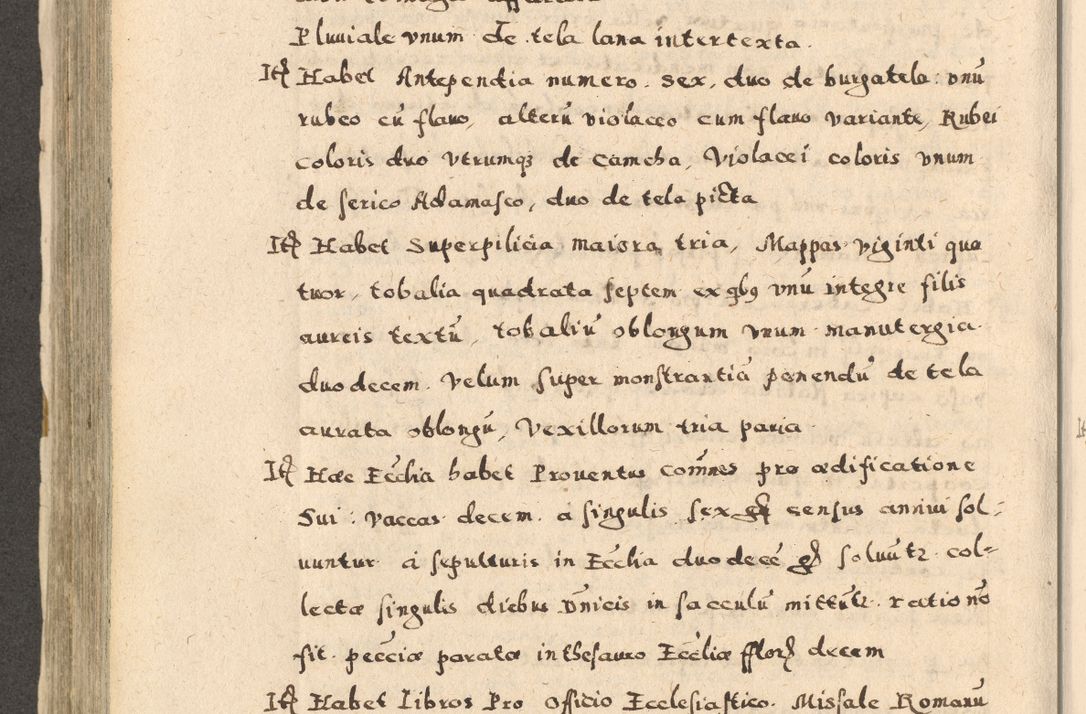 Pluuiale vnum de tela lana intertexta.
Itꝫ Habet Antependia numero. sex, duo de burgatela: vnū
rubeo cū flauo, alterū violaceo cum flauo variante, Rubei
coloris duo vtrumqꝫ de Camcha, Violacei coloris vnum
de serico Adamasco, duo de tela picta
Itꝫ Habet Superpilicia maiora tria, Mappas viginti qua
tuor, tobalia quadrata septem ex qbꝯ vnū integre filis
aureis textū, tobaliū oblongum vnum manutergia
duodecem. Velum super monstrantiā ponendū de tela
aurata oblongū, Vexillorum tria paria
Itꝫ Hæc Ecclia habet Prouentus com̄nes pro ædificatione
Sui: vaccas decem. a singulis sex gꝝ census annui sol-
uuntur à sepulturis in Ecclia duodecē gꝝ soluūtr col-
lectæ singulis diebus Dn̄icis in sacculū mittūtr. ratio nō
fit. pecciæ paratæ in thesauro Eccliæ fflorꝝ decem
Itꝫ Habet Libros Pro Officio Ecclesiastico. Missale Romanū